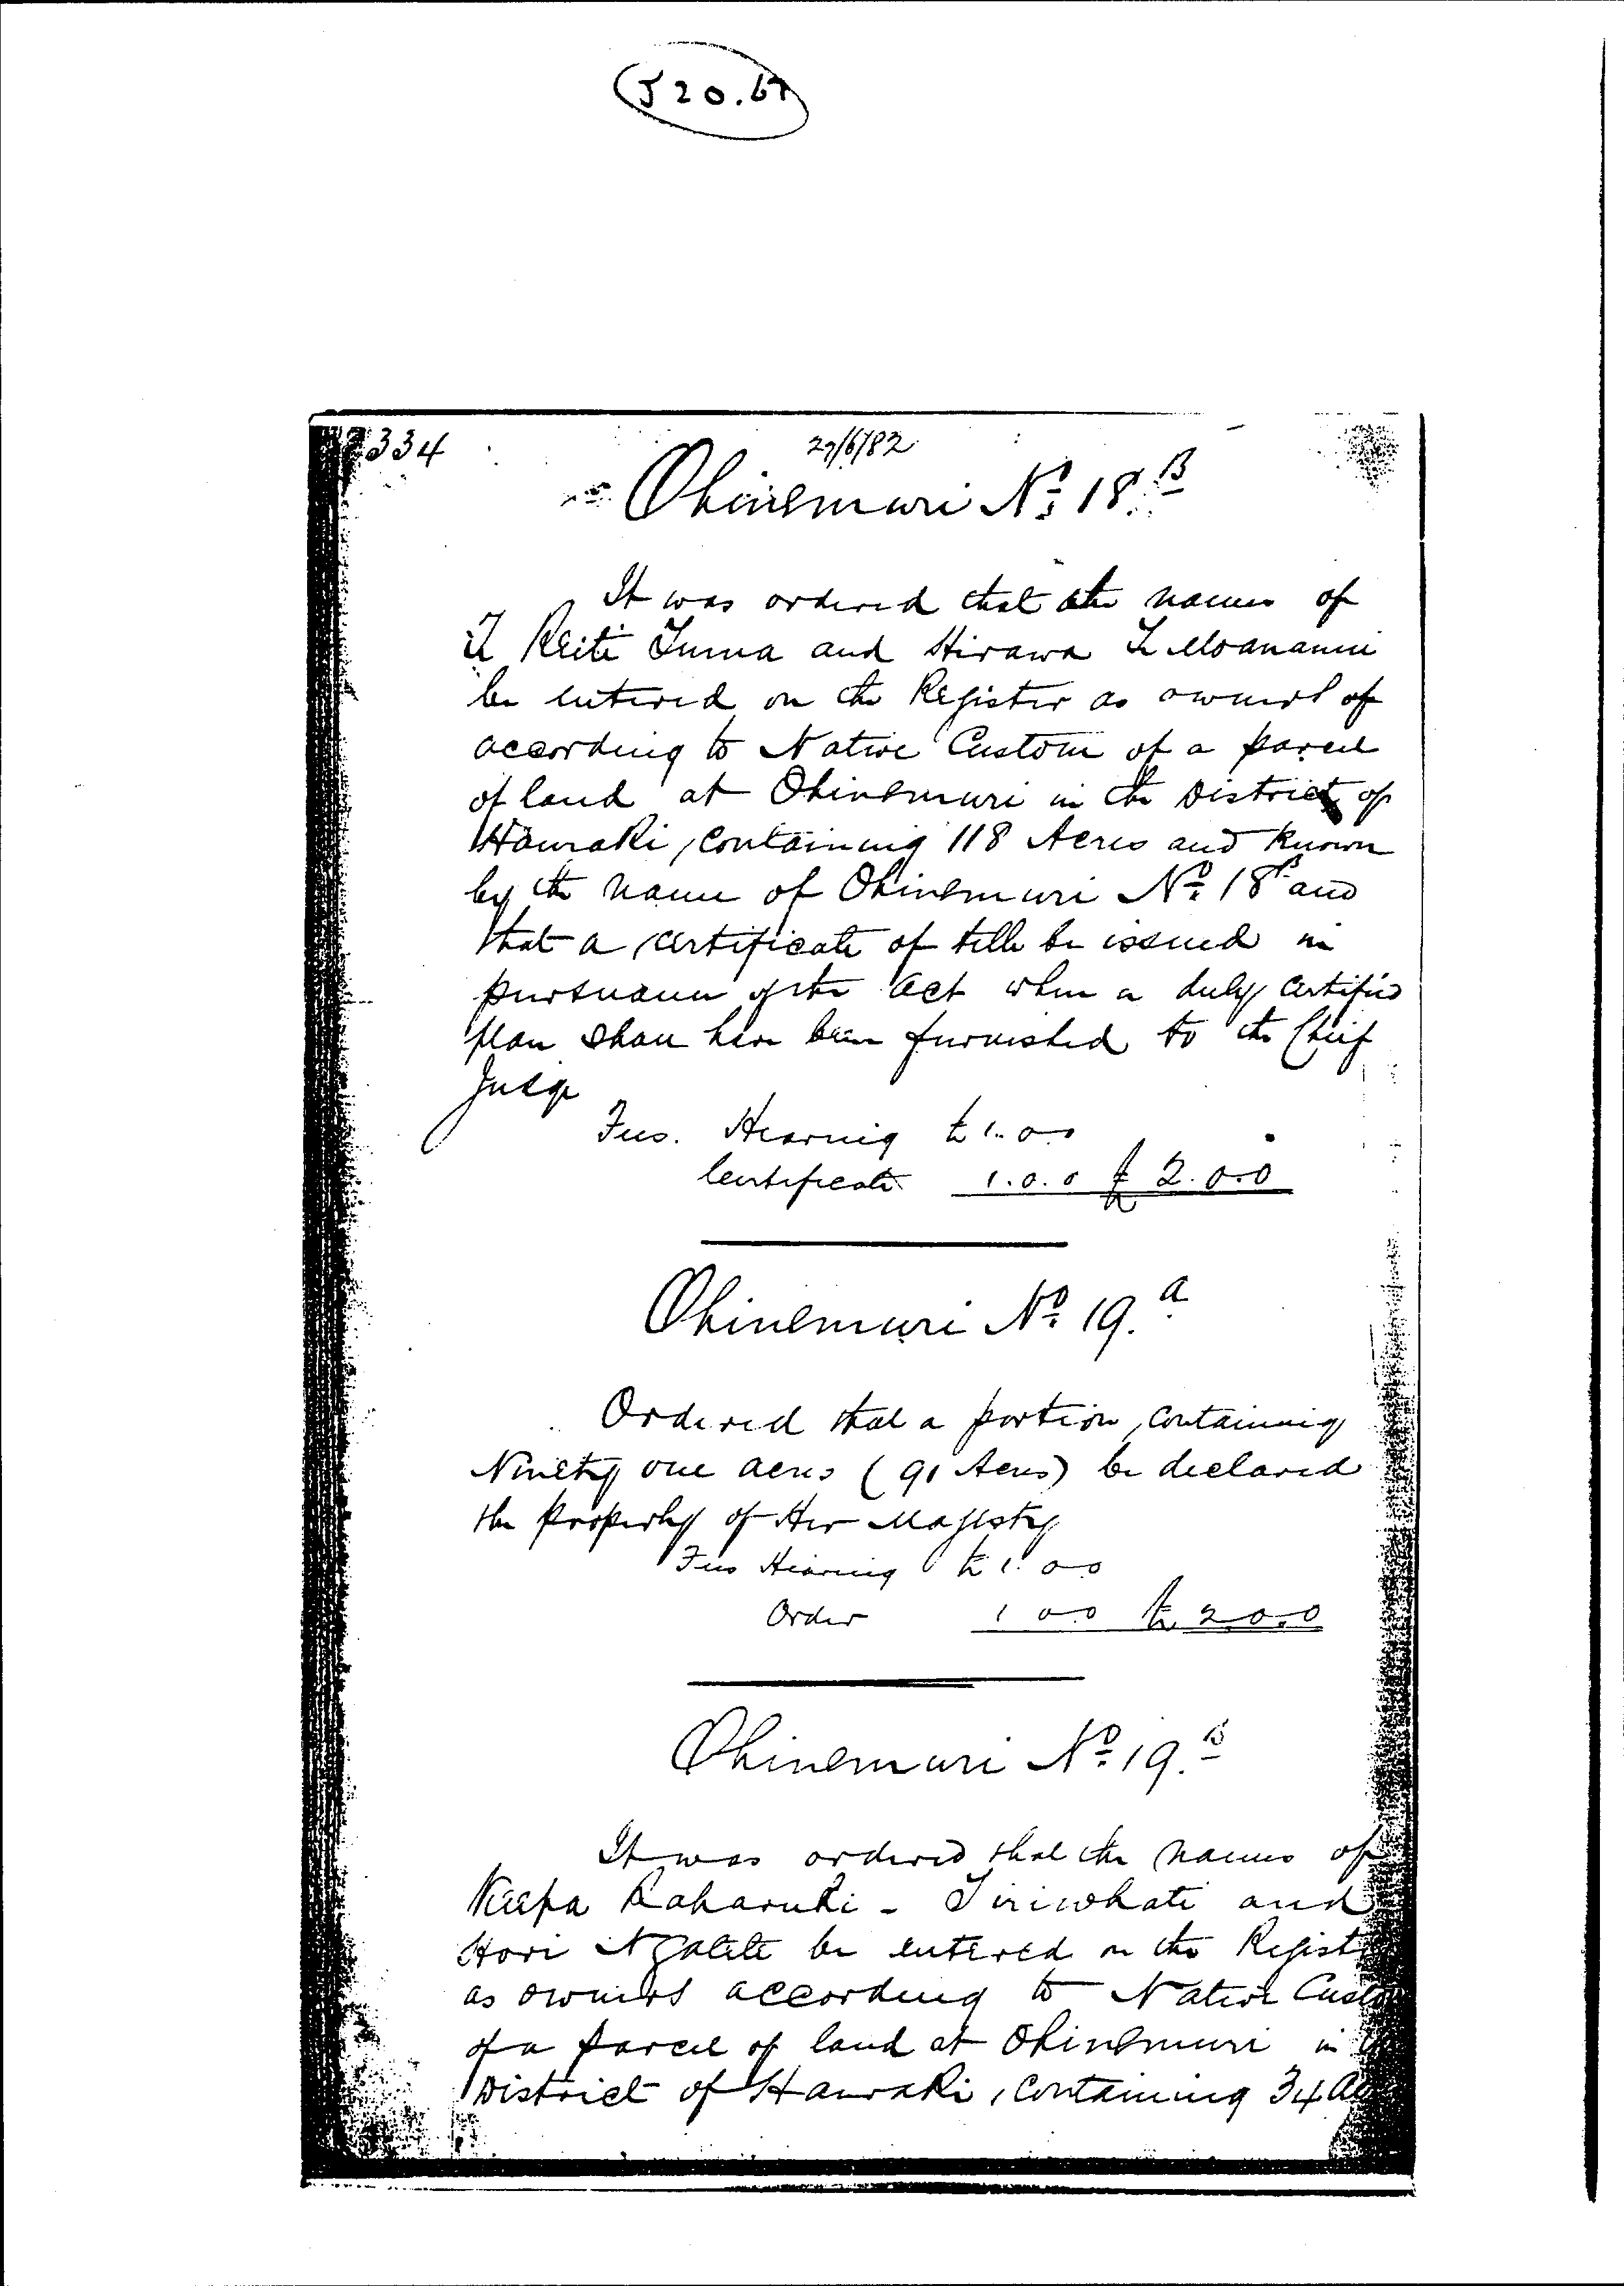 J20.67
334
27/6/82
Ohinemuri No 18.B
It was ordered that the names of
Te Keiti Tuma and Hirawa Te Moananui
be entered on the Register as owners of
according to Native Custom of a parcel
of land at Ohinemuri in the District of
Hauraki, containing 118 Acres and known
by the name of Ohinemuri No 18B and
that a certificate of title be issued in
pursuance of the Act when a duly certified
plan shall have been furnished to the Chief
Judge
Fees. Hearing £1.0.0
Certificate 1.0.0 £2.0.0
Ohinemuri No 19.a
Ordered that a portion, containing
Ninety one acres (91 Acres) be declared
the property of Her Majesty
Fees Hearing £1.0.0
Order 1 0.0 £2 0.0
Ohinemuri No 19.B
It was ordered that the names of
Keepa Raharuhi - Tiriwhati and
Hori Ngatete be entered on the Regist
as owners according to Native Custo
of a parcel of land at Ohinemuri in
District of Hauraki, containing 34 Ac